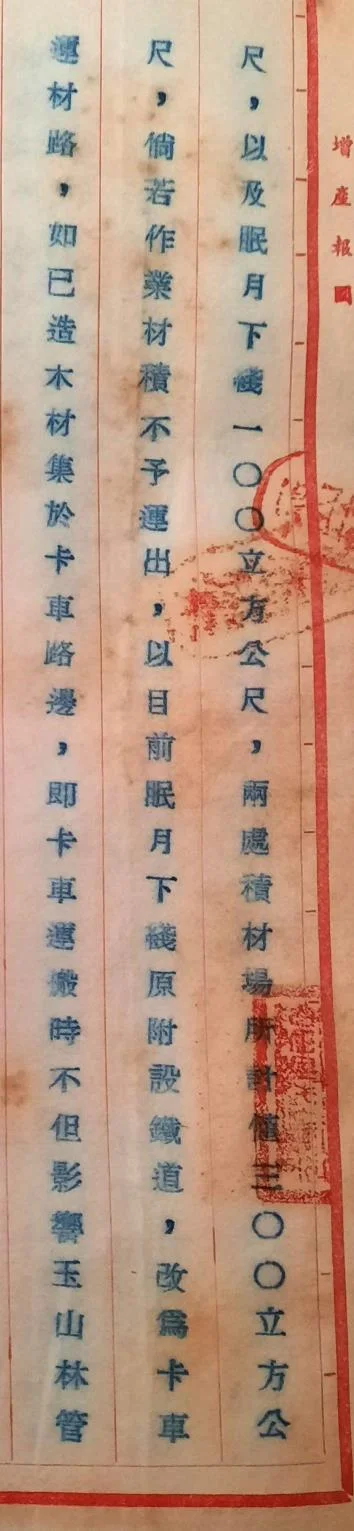 增產報國
尺，以及眠月下綫一〇〇立方公尺，兩處積材場所計僅三〇〇立方公
尺，倘若作業材積不予運出，以目前眠月下綫原附設鐵道，改為卡車
運材路，如已造木材集於卡車路邊，即卡車運搬時不但影響玉山林管